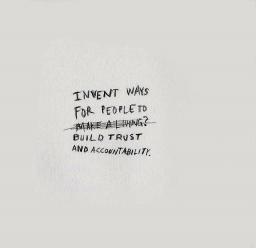 INVENT WAYS
FOR PEOPLE TO
MAKE A LIVING?
BUILD TRUST
AND ACCOUNTABILITY.